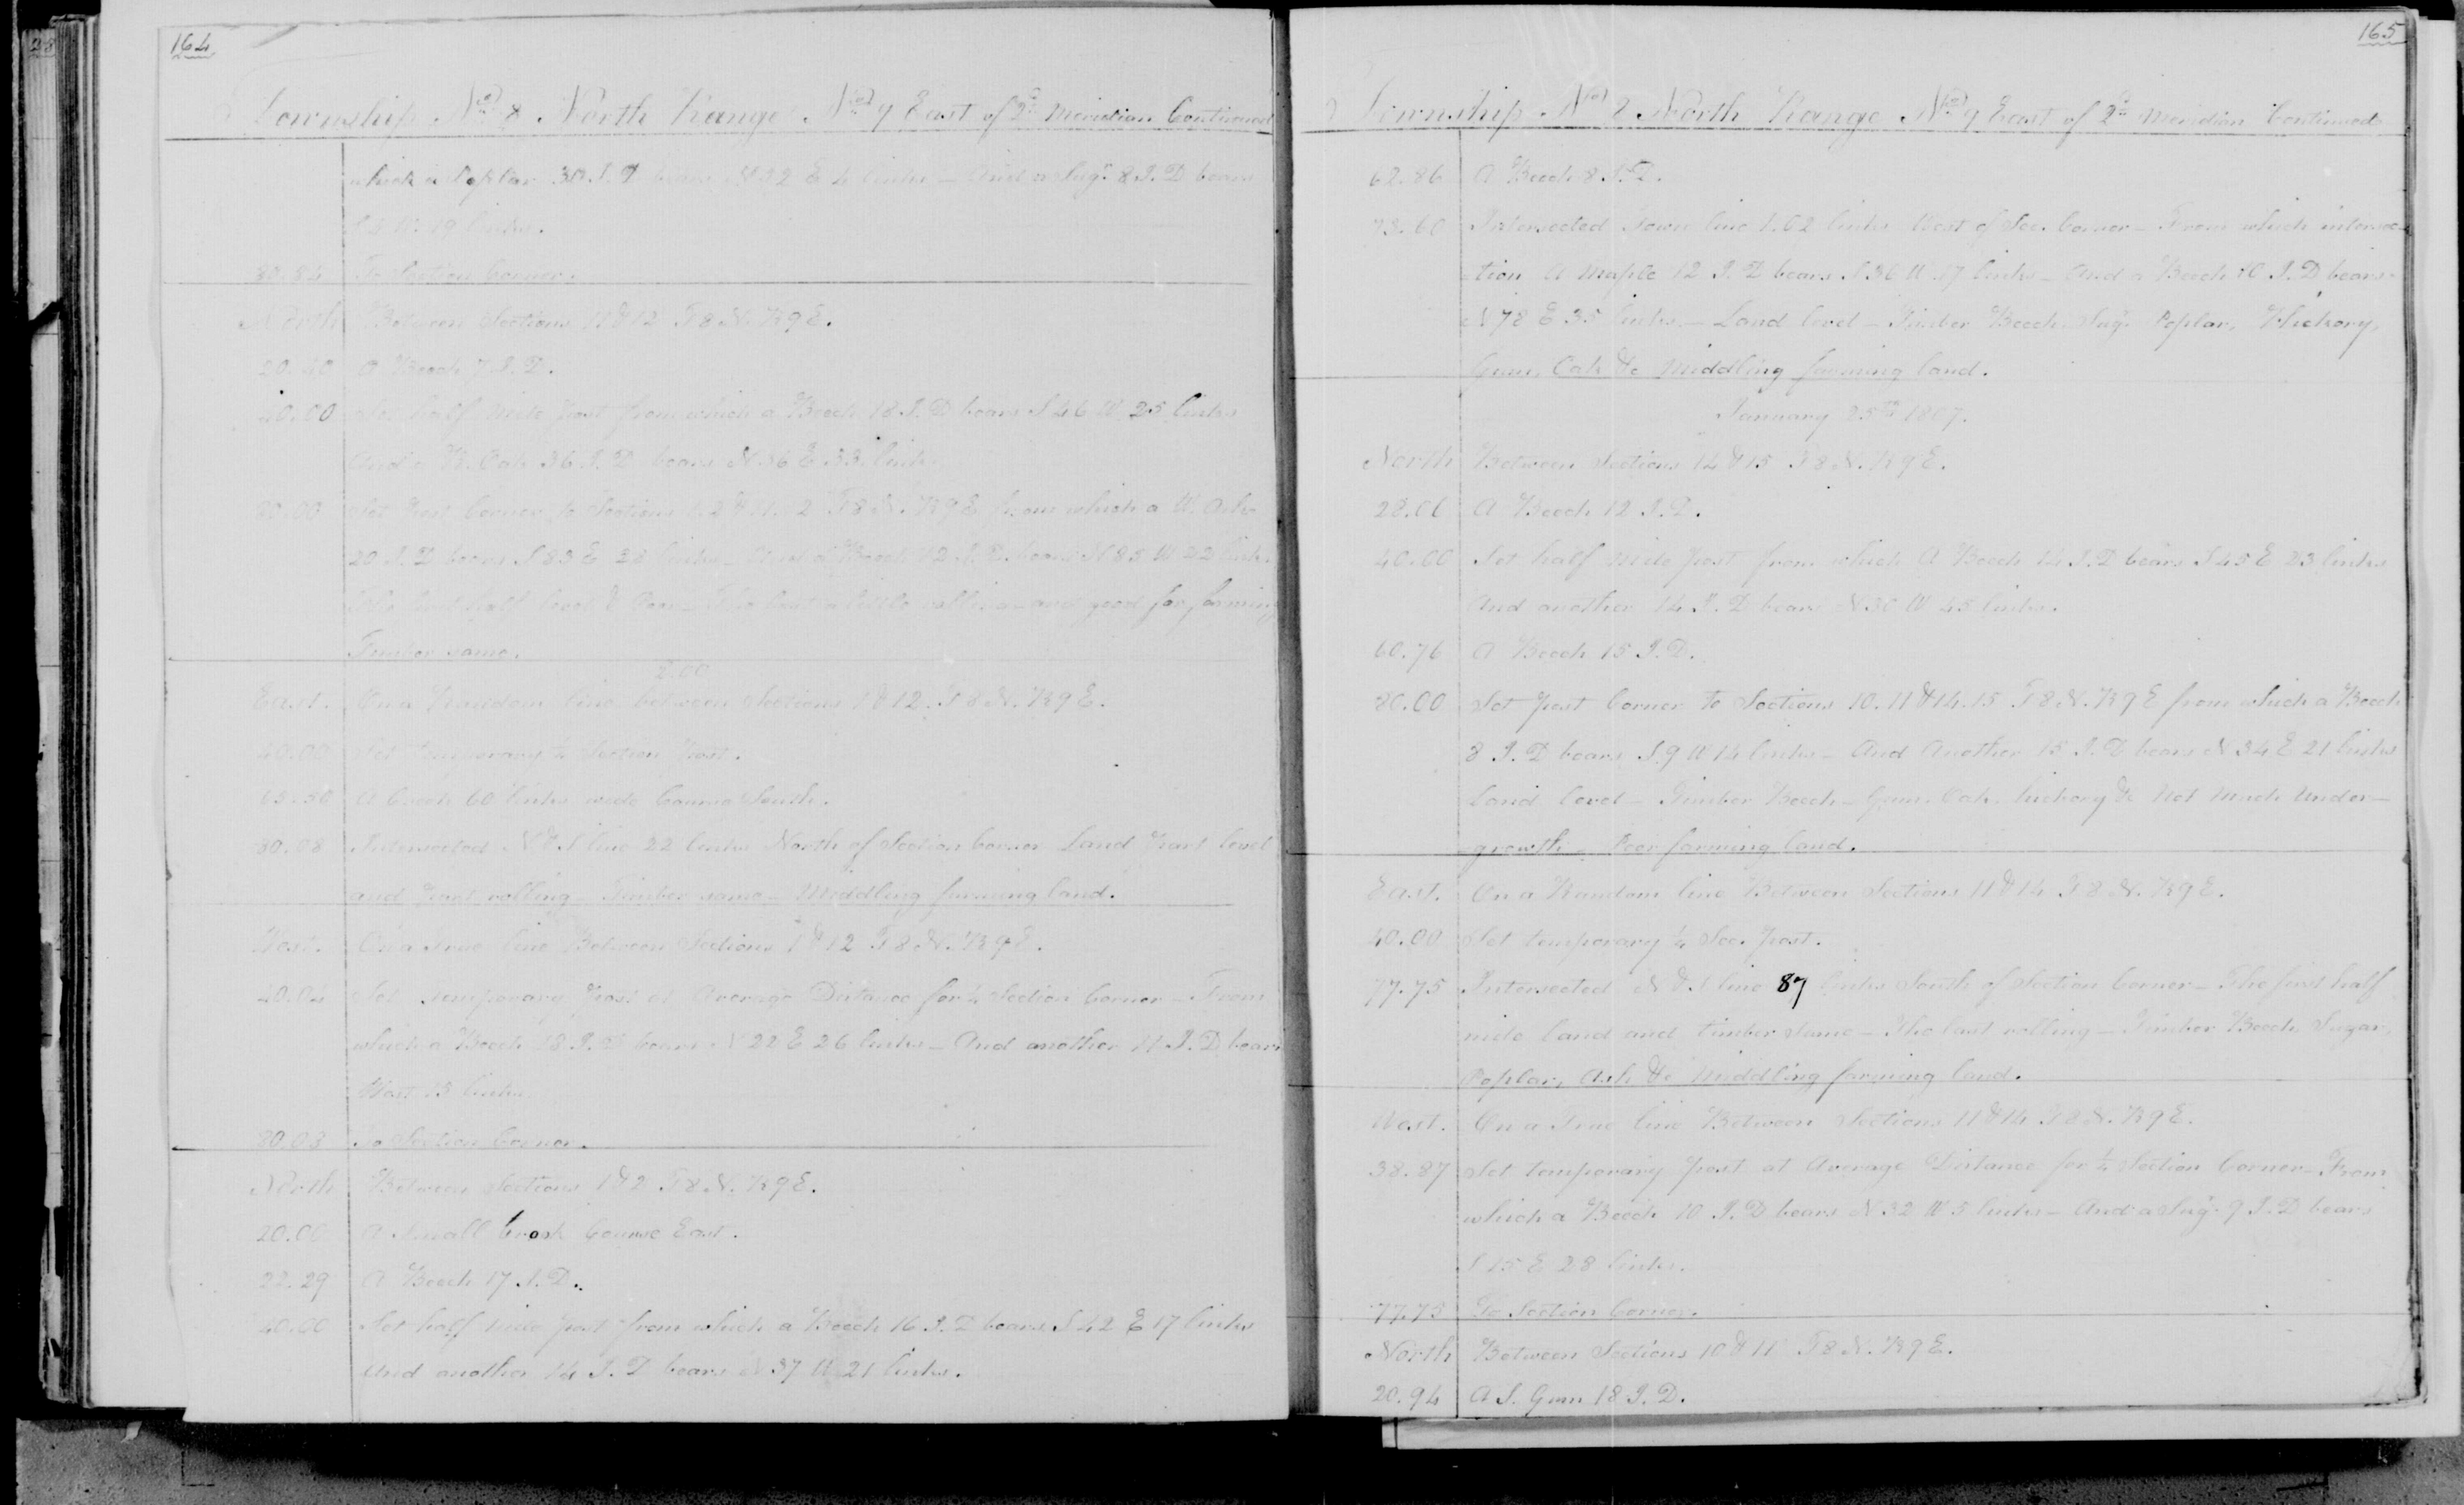 164
Township No 8 North Range No 9 East of 2d Meridian Continued
which a Poplar 30 I. D bears N 32 E 4 links – And a Sugr 8 I. D bears
W. 19 links.
80.84 To Section Corner.
North Between Sections 11 & 12 T 8 N. R 9 E.
20.40 A Beech 7 I. D.
40.00 Set half mile post from which a Beech 18 I. D bears S 46 W 25 links
And a W. Oak 36 I. D bears N 36 E 33 links
80.00 Set post Corner to Sections 1. 2 & 11. 12 T 8 N. R 9 E from which a W. Ash
20 I. D bears S 83 E 28 links – And a Beech 12 I. D. bears N 85 W 22 links.
The first half level & Poor – The last a little rolling and good for farming
Timber same.
2.00
East. On a Random line between Sections 1 & 12. T 8 N. R 9 E.
40.00 Set temporary ¼ Section post.
65.50 A Creek 60 links wide Course South.
80.08 Intersected N & S line 22 links North of Section Corner Land part level
and part rolling – Timber same – Middling farming land.
West. On a True line Between Sections 1 & 12 T 8 N. R 9 E.
40.04 Set temporary post at Average Distance for ¼ Section Corner – From
which a Beech 18 I. D bears N 22 E 26 links – And another 11 I. D bears
West 15 links.
80.08 To Section Corner.
North Between Sections 1 & 2 T 8 N. R 9 E.
20.00 A Small brook Course East.
22.29 A Beech 17 I. D.
40.00 Set half mile post from which a Beech 16 I. D bears S 42 E 17 links
And another 14 I. D bears N 37 W 21 links.
165
Township No 8 North Range No 9 East of 2d Meridian Continued
62.86 A Beech 8 I. D.
73.60 Intersected Town line 1.02 links West of Sec. Corner – From which intersec-
tion A Maple 12 I. D bears S 36 W 17 links – And a Beech 10 I. D bears
N 78 E 35 links – Land level – Timber Beech, Sugr Poplar, Hickory,
Gum, Oak &c Middling farming land.
January 25th 1807.
North Between Sections 14 & 15 T 8 N. R 9 E.
28.06 A Beech 12 I. D.
40.00 Set half mile post from which A Beech 14 I. D bears S 45 E 83 links
And another 14 I. D bears N 30 W 45 links.
60.76 A Beech 15 I. D.
80.00 Set post Corner to Sections 10. 11 & 14. 15 T 8 N. R 9 E from which a Beech
8 I. D bears S 9 W 14 links – And Another 15 I. D bears N 34 E 21 links
Land level – Timber Beech – Gum, Oak, hickory &c Not Much Under-
growth – Poor farming land.
East. On a Random line Between Sections 11 & 14 T 8 N. R 9 E.
40.00 Set temporary ¼ Sec. post.
77.75 Intersected N & S line 87 links South of Section Corner – The first half
mile land and timber same – The last rolling – Timber Beech Sugar,
Poplar, Ash &c Middling farming land.
West. On a True line Between Sections 11 & 14 T 8 N. R 9 E.
38.87 Set temporary post at Average Distance for ¼ Section Corner – From
which a Beech 10 I. D bears N 32 W 5 links – And a Sugr 9 I. D bears
S 15 E 28 links.
77.75 To Section Corner.
North Between Sections 10 & 11 T 8 N. R 9 E.
20.94 A S. Gum 18 I. D.